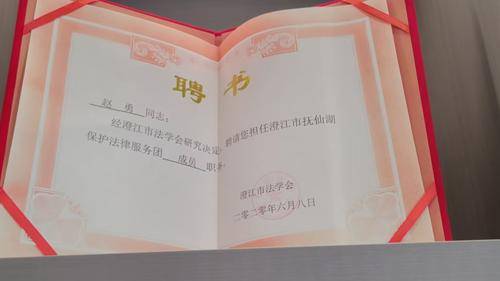 聘书
赵勇同志：
经澄江市法学会研究决定，聘请您担任澄江市抚仙湖
保护法律服务团成员职务。
澄江市法学会
二零二零年六月八日